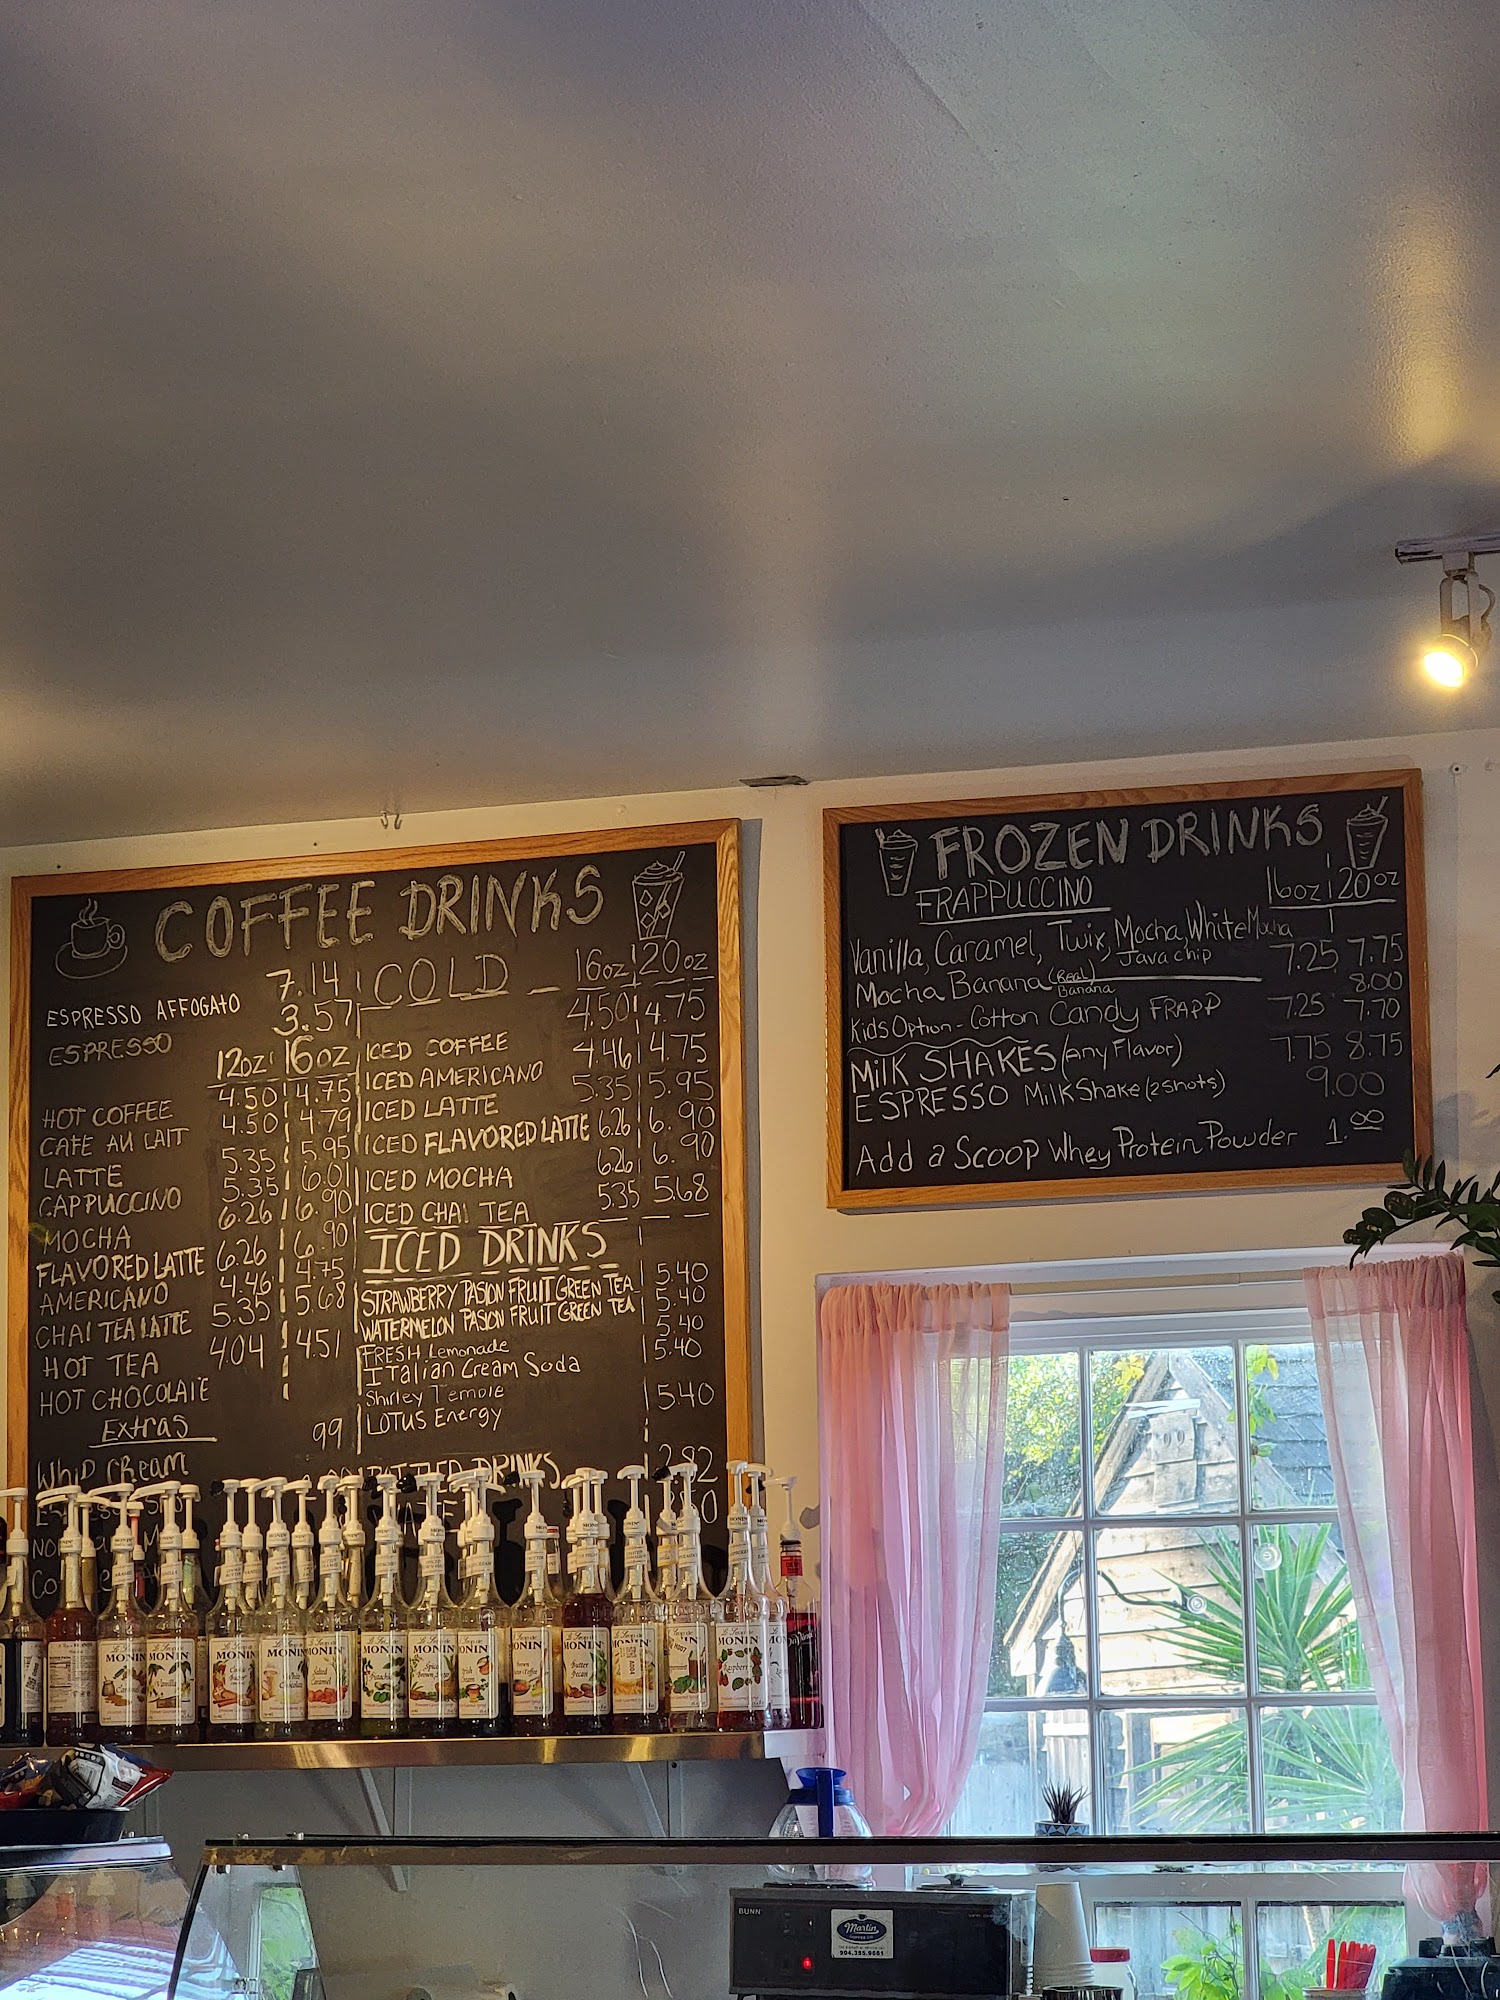 COFFEE DRINKS
ESPRESSO AFFOGATO 7.14
ESPRESSO 3.57
12oz 16oz
HOT COFFEE 4.50 4.75
CAFE AU LAIT 4.50 4.79
LATTE 5.35 5.95
CAPPUCCINO 5.35 6.01
MOCHA 6.26 6.90
FLAVORED LATTE 6.26 6.90
AMERICANO 4.46 4.75
CHAI TEA LATTE 5.35 5.68
HOT TEA 4.04 4.51
HOT CHOCOLATE
Extras
Whip Cream 99
COLD 16oz 20oz
ICED COFFEE 4.50 4.75
ICED AMERICANO 4.46 4.75
ICED LATTE 5.35 5.95
ICED FLAVORED LATTE 6.26 6.90
ICED MOCHA 6.26 6.90
ICED CHAI TEA 5.35 5.68
ICED DRINKS
STRAWBERRY PASION FRUIT GREEN TEA 5.40
WATERMELON PASION FRUIT GREEN TEA 5.40
FRESH Lemonade 5.40
ITalian Cream Soda 5.40
Shirley Temple
LOTUS Energy 5.40
BOTTLED DRINKS 2.82
FROZEN DRINKS
FRAPPUCCINO 16oz 20oz
Vanilla, Caramel, Twix, Mocha, White Mocha
Java chip 7.25 7.75
Mocha Banana (Real Banana) 8.00
Kids Option - Cotton Candy FRAPP 7.25 7.70
Milk SHAKES (any Flavor) 7.75 8.75
ESPRESSO MilkShake (2 shots) 9.00
Add a Scoop Whey Protein Powder 1.00
MONIN
MONIN
Vanilla
MONIN
MONIN
MONIN
Salted Caramel
MONIN
Pistachio
MONIN
MONIN
MONIN
MONIN
Butter Pecan
MONIN
MONIN
Raspberry
BUNN
Martin
904.355.9661